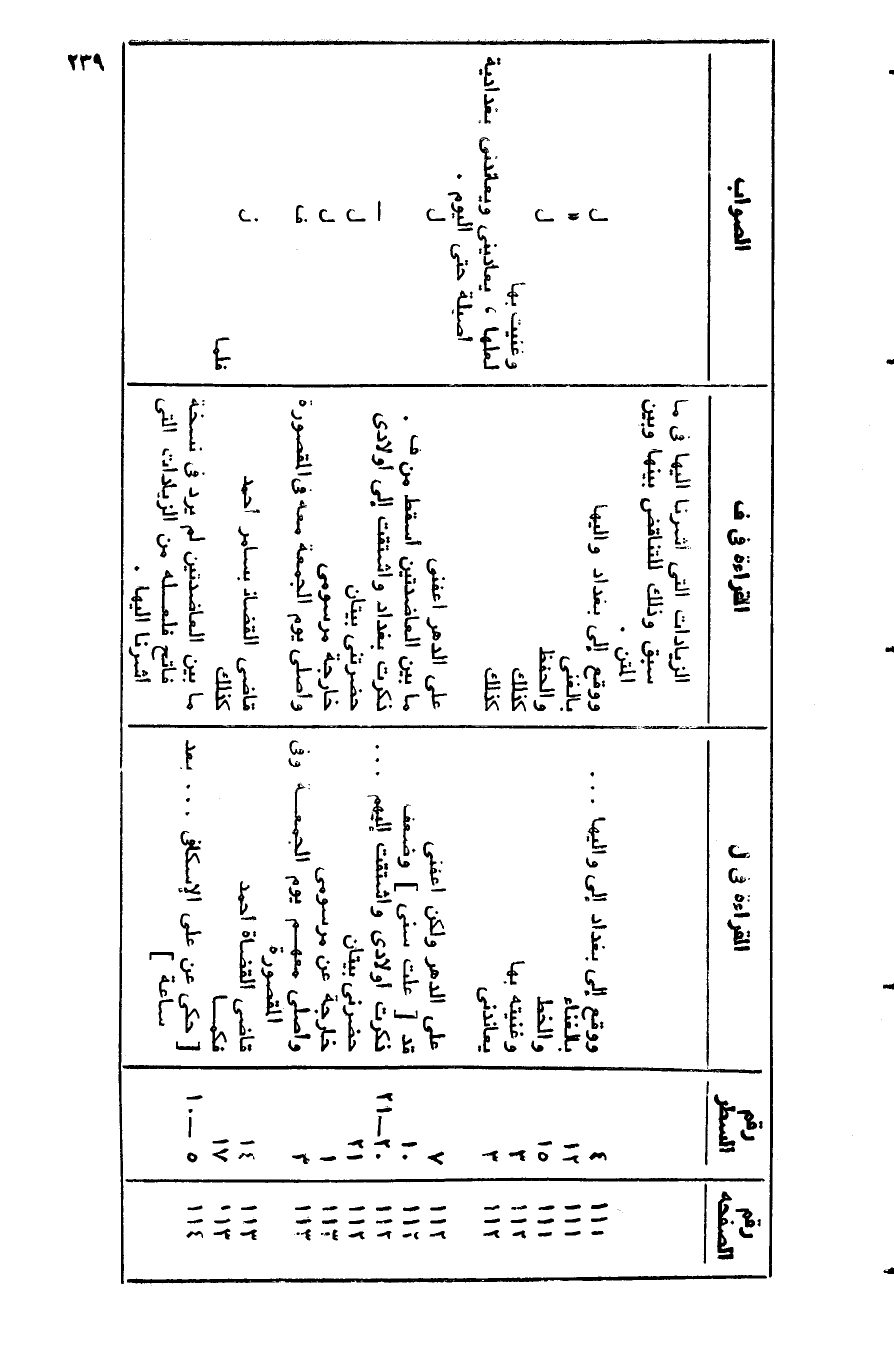 ٢٣٩
رقم الصفحه رقم السطر القراءة فى ل القراءة فى ف الصواب
الزيادات التى أشرنا اليها فى ما
سبق وذلك للتناقض بينها وبين
المتن .
١١١ ٤ ووقع إلى بغداد إلى واليها ... ووقع إلى بغداد واليها ل
١١١ ١٢ بالغناء بالغنى »
١١١ ١٥ والخط والحفظ ل
١١٢ ٣ وغنيته بها كذلك وغنيت بها
١١٢ ٣ يعاندنى كذلك لعلها ، يعادينى ويعاندنى بغدادية
أصيلة حتى اليوم .
١١٢ ٧ على الدهر ولكن اعفنى على الدهر اعفنى ل
١١٢ ١٠ قد [ علت سنى ] وضعف ما بين العاضدتين أسقط من ف .
١١٢ ٢٠—٢١ ذكرت أولادى واشتقت إليهم ... ذكرت بغداد واشتقت إلى أولادى —
١١٢ ٢١ حضرنى بيتان حضرتنى بيتان ل
١١٣ ١ خارجة عن مرسومى خارجة مرسومى ل
١١٣ ٣ وأصلى معهم يوم الجمعة وفى وأصلى يوم الجمعة معه فى المقصورة ف
المقصورة
١١٣ ١٤ قاضى القضاة أحمد قاضى القضاة بسامر أحمد ن
١١٣ ١٧ فكما كذلك فلما
١١٤ ٥—١٠ [ حكى عن على الإسكافى ... بعد ما بين العاضدتين لم يرد فى نسخة
ساعة ] فاتح فلعله من الزيادات التى
أشرنا اليها .